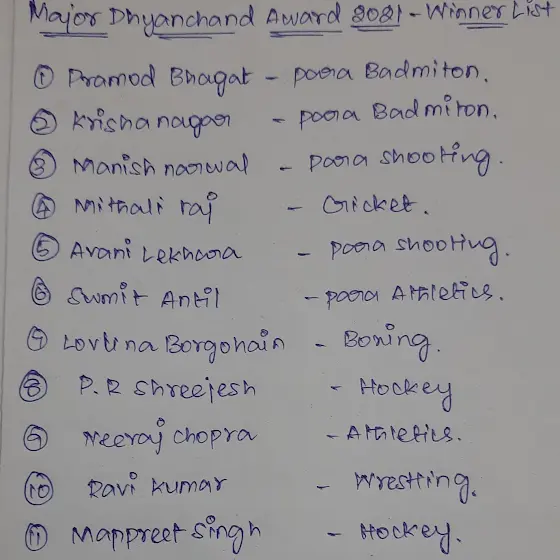 Major Dhyanchand Award 2021 - Winner List
① Pramod Bhagat - para Badmiton.
② Krishanagar - para Badmiton.
③ Manish narwal - para shooting.
④ Mithali raj - Cricket.
⑤ Avani Lekhara - para shooting.
⑥ Sumit Antil - para Athletics.
⑦ Lovlina Borgohain - Boxing.
⑧ P.R Shreejesh - Hockey
⑨ Neeraj chopra - Athletics.
⑩ Ravi Kumar - Wrestling.
⑪ Manpreet Singh - Hockey.